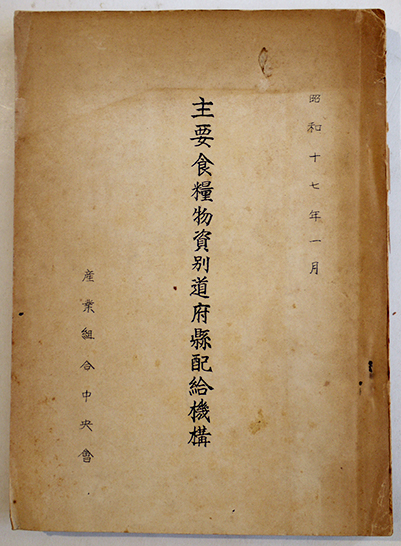 昭和十七年一月
主要食糧物資別道府縣配給機構
産業組合中央會